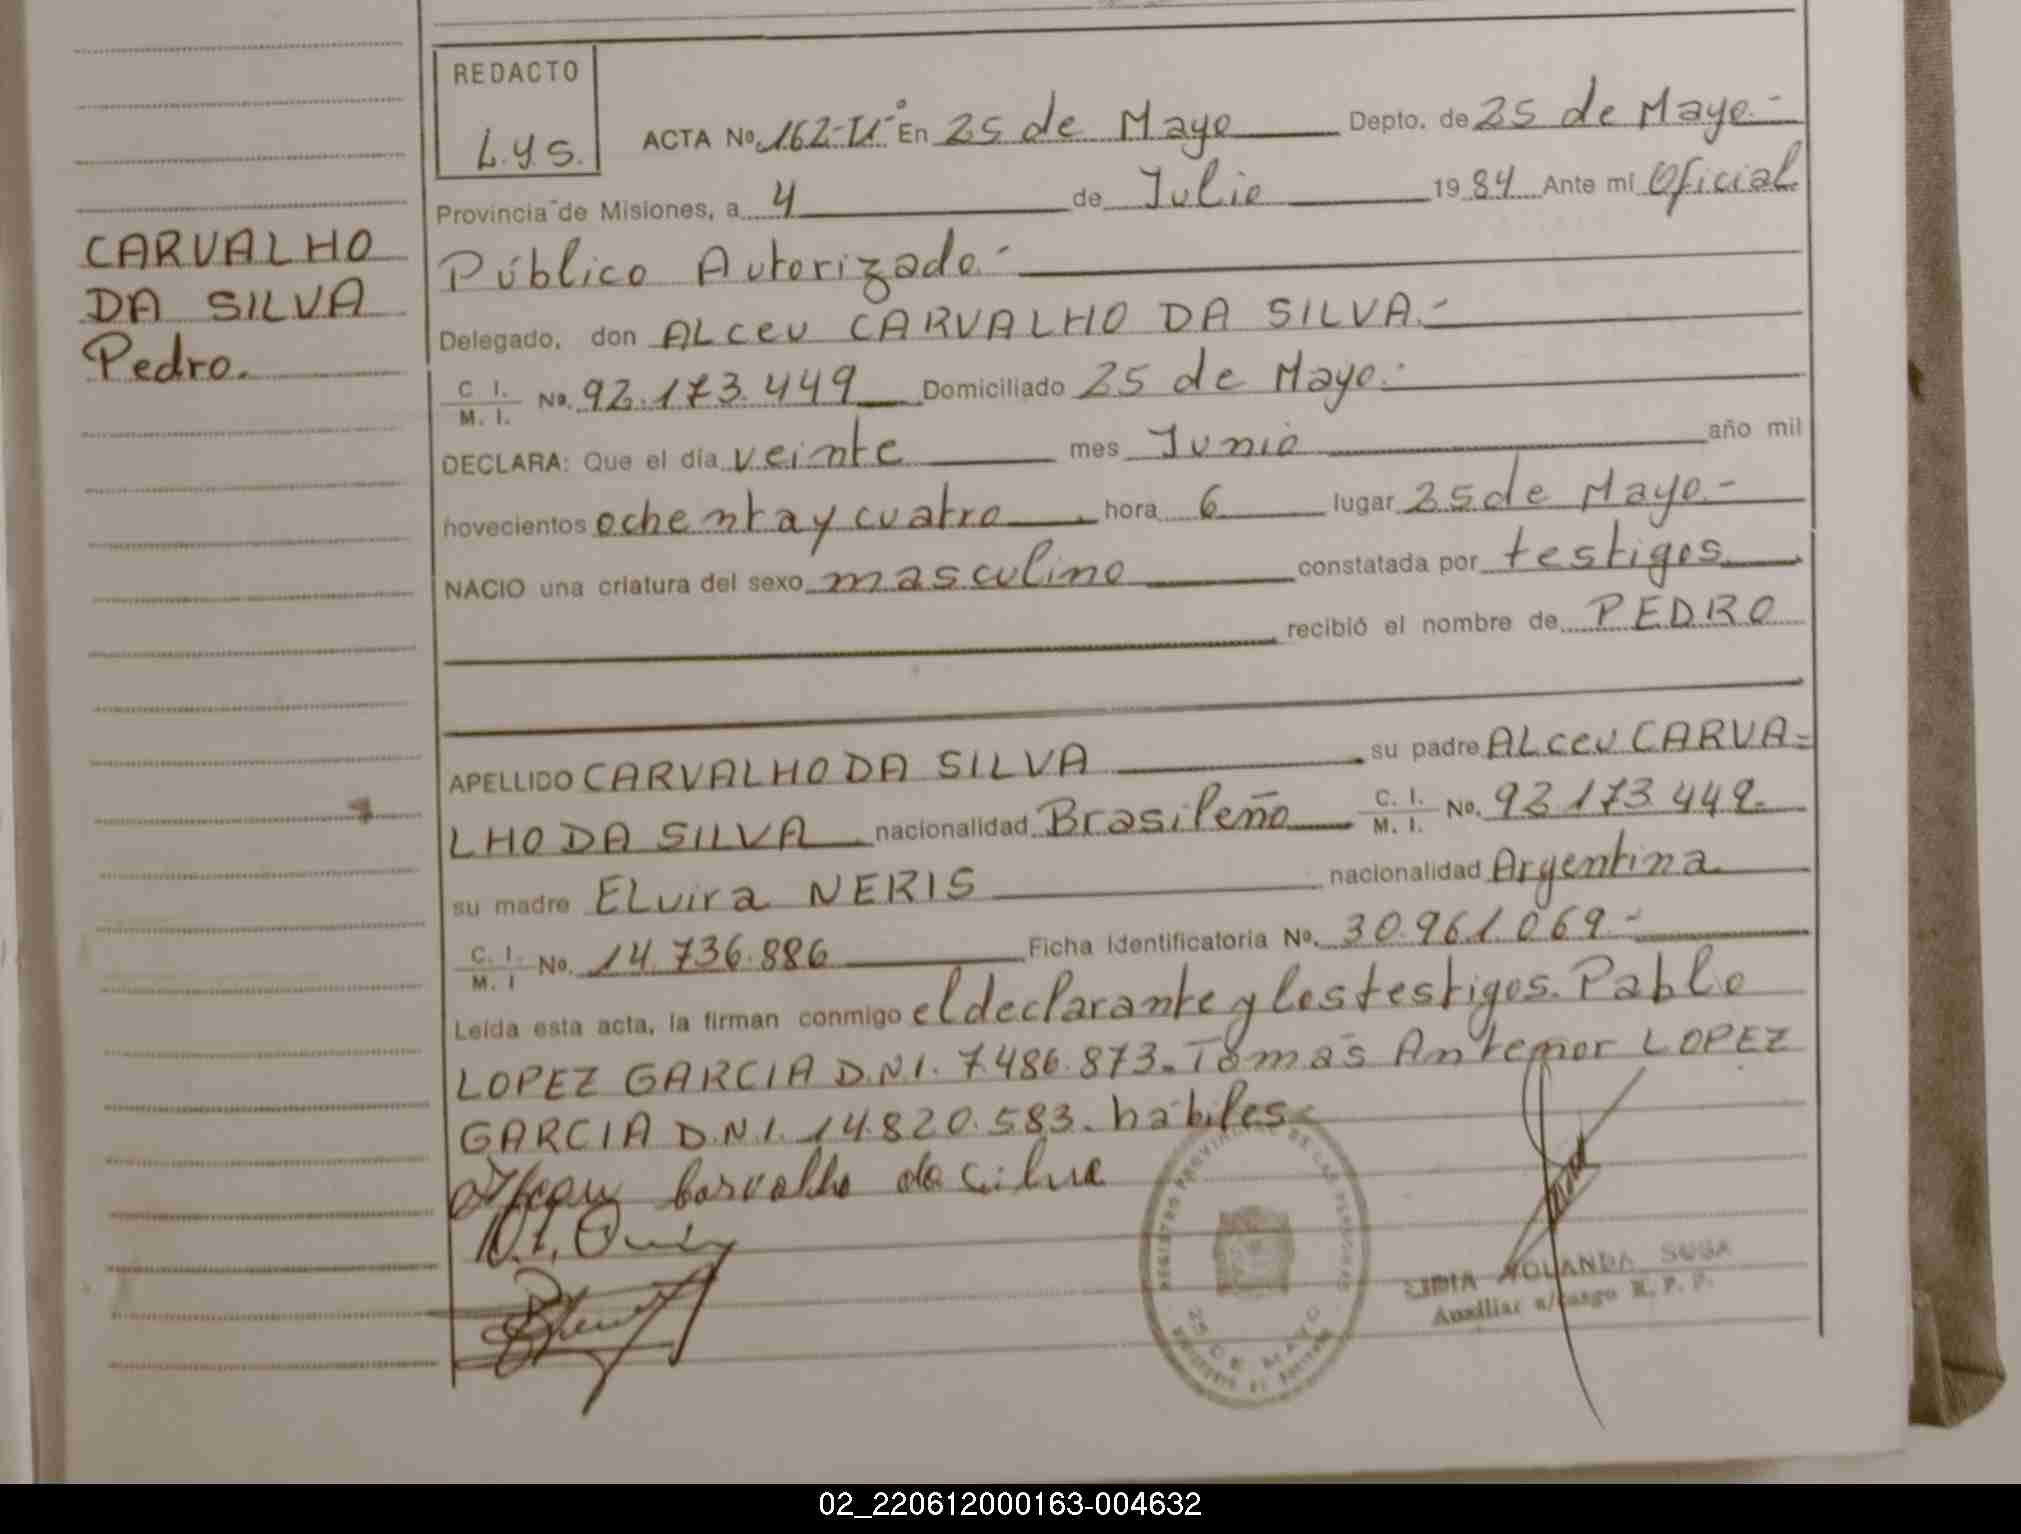 REDACTO
L.y.s.
ACTA No. 162-II° En 25 de Mayo Depto. de 25 de Mayo.-
Provincia de Misiones, a 4 de Julio 1984 Ante mi Oficial
Público Autorizado.-
CARVALHO
DA SILVA
Pedro.
Delegado, don ALceu CARVALHO DA SILVA.-
C. I. / M. I. No. 92.173.449 Domiciliado 25 de Mayo.-
DECLARA: Que el día veinte mes Junio año mil
novecientos ochenta y cuatro hora 6 lugar 25 de Mayo.-
NACIO una criatura del sexo masculino constatada por testigos
recibió el nombre de PEDRO
APELLIDO CARVALHO DA SILVA su padre ALceu CARVA=
LHO DA SILVA nacionalidad Brasileño C. I. / M. I. No. 92.173.449.
su madre ELvira NERIS nacionalidad Argentina
C. I. / M. I No. 14.736.886 Ficha Identificatoria No. 30.961.069.-
Leída esta acta, la firman conmigo el declarante y los testigos. Pablo
LOPEZ GARCIA D.N.I. 7.486.873. Tomás Antenor LOPEZ
GARCIA D.N.I. 14.820.583. hábiles.
Carvalho da Cilva
REGISTRO PROVINCIAL DE LAS PERSONAS
25 DE MAYO
LIDIA YOLANDA SUSA
Auxiliar a/cargo R. P. P.
02_220612000163-004632